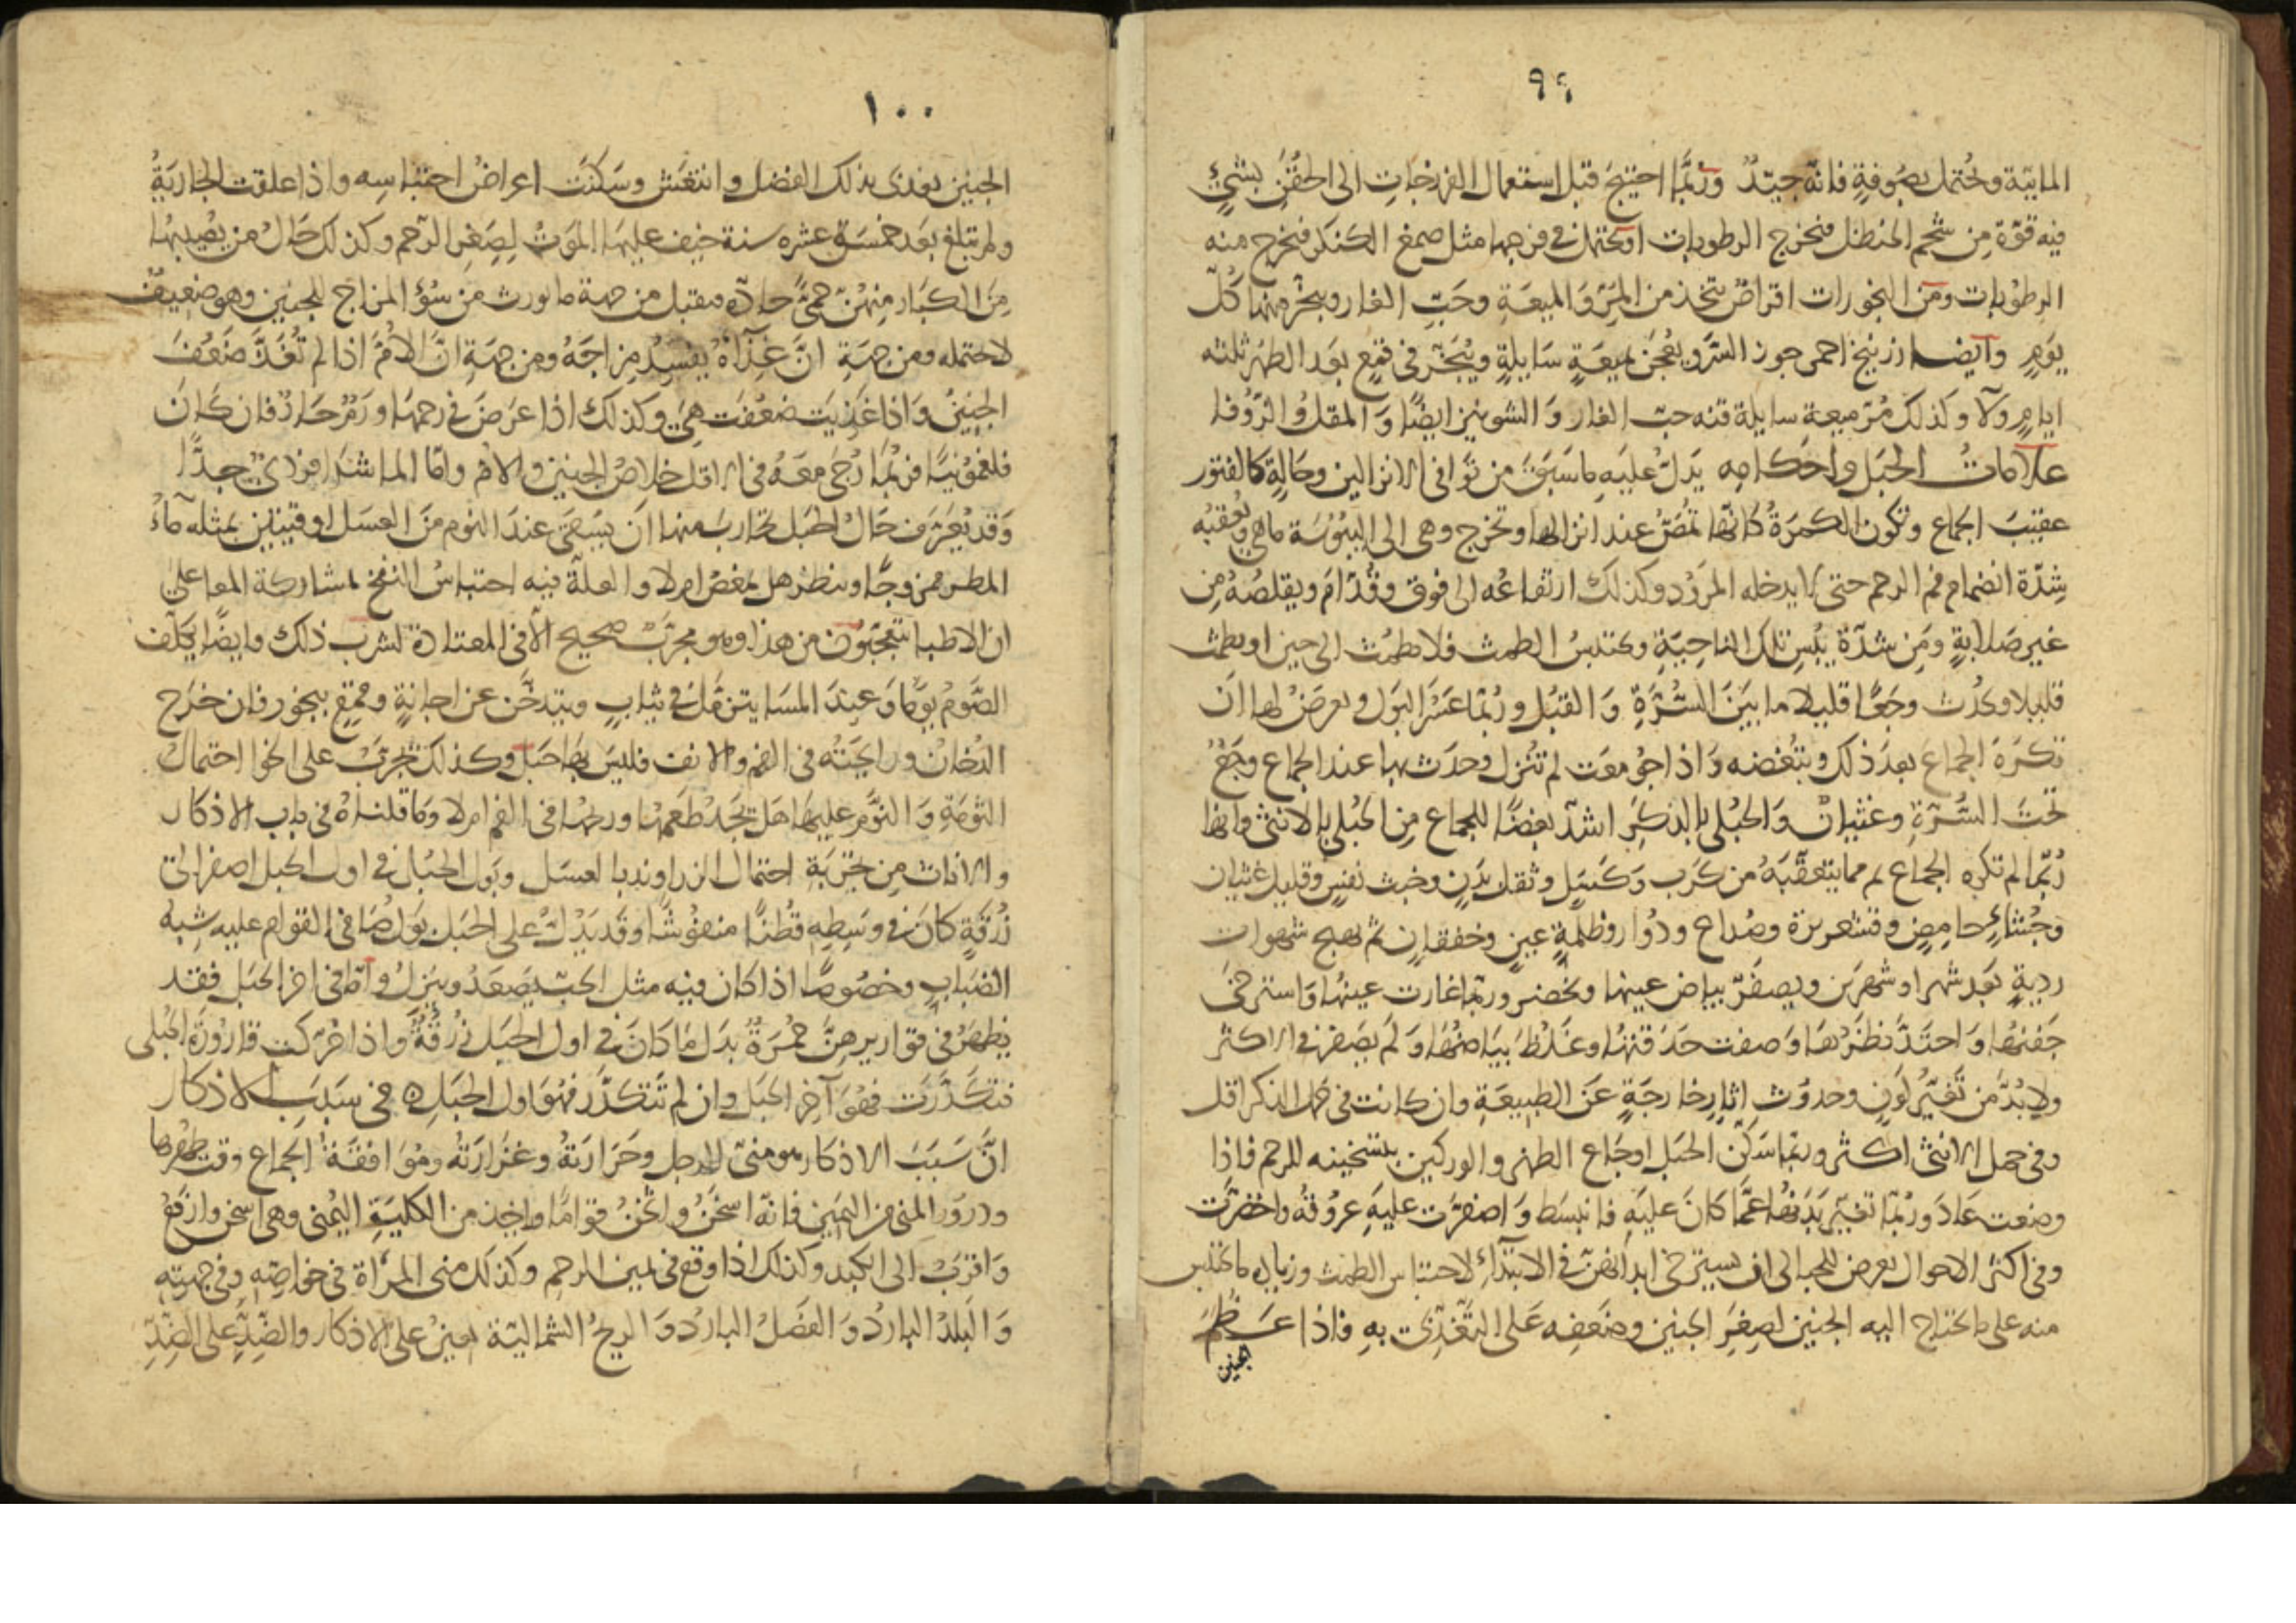 ٩٩
المايية وتحتمل بصوفة فانه جيد وربما احتيج قبل استعمال الفرزجات الى الحقن بشئ
فيه قوة من شحم الحنظل فتخرج الرطوبات او تحتمل فى فرجها مثل صمغ الكنكر فتخرج منه
الرطوبات ومن البخورات اقراص تتخذ من المر والميعة وحب الغار ويبخر منها كل
يوم وايضا زرنيخ احمر جوز السرو يعجن بميعة سايلة ويبخر فى قمع بعد الطهر ثلثه
ايام ولا وكذلك مر ميعة سايلة قنه حب الغار والشونيز ايضا والمقل والزوفا
علامات الحبل واحكامه يدل عليه ما سبق من توافى الانزالين وحالة كالفتور
عقيب الجماع وتكون الكمرة كانها تمص عند انزالها وتخرج وهى الى اليبوسة ما هى وتعقبه
شدة انضمام فم الرحم حتى لا يدخله المرود وكذلك ارتفاعه الى فوق وقدام ويقلصه من
غير صلابة ومن شدة يبس تلك الناحية ويحتبس الطمث فلا يطمث الى حين او يطمث
قليلا ويحدث وجعا قليلا ما بين السرة والقبل وربما عسر البول ويعرض لها ان
تكره الجماع بعد ذلك وتبغضه واذا جومعت لم تنزل وحدث بها عند الجماع وجع
تحت السرة وغثيان والحبلى بالذكر اشد بغضا للجماع من الحبلى بالانثى وانها
ربما لم تكره الجماع ثم مما يتعقبه من كرب وكسل وثقل بدن وخبث نفس وقليل غثيان
وجشاء حامض وقشعريرة وصداع ودوار وظلمة عين وخفقان ثم تهيج شهوات
ردية بعد شهر او شهرين ويصفر بياض عينها ويخضر وربما غارت عينها واسترخى
جفنها واحتد نظرها وصفت حدقتها وغلظ بياضها ولم يصفر فى الاكثر
ولا بد من تغير لون وحدوث اثار خارجة عن الطبيعة وان كانت فى حمل الذكر اقل
وفى حمل الانثى اكثر وربما سكن الحبل اوجاع الظهر والوركين بتسخينه للرحم فاذا
وضعت عاد وربما تغير بدنها عما كان عليه فانبسط واصفرت عليه عروقه واخضرت
وفى اكثر الاحوال يعرض للحبالى ان يسترخى ابدانهن فى الابتداء لاحتباس الطمث وزيادة ما يحتبس
منه على ما يحتاج اليه الجنين لصغر الجنين وضعفه على التغذى به فاذا عظم
الجنين
١٠٠
الجنين يغذى بذلك الفضل وانتعش وسكنت اعراض احتباسه واذا علقت الجارية
ولم تبلغ بعد خمسة عشره سنة خيف عليها الموت لصغر الرحم وكذلك حال من يصيبها
من الكبار منهن حمى حادة فيقتل من جهة ما يورث من سؤ المزاج للجنين وهو ضعيف
لا يحتمله ومن جهة ان غذاءه يفسد مزاجه ومن جهة ان الام اذا لم تغذ ضعف
الجنين واذا غذيت ضعفت هى وكذلك اذا عرض فى رحمها ورم حار فان كان
فلغمونيا فربما رجى معه فى الاقل خلاص الجنين والام واما الماشرا فردئ جدا
وقد يعرف حال الحبل تجارب منها ان يسقى عند النوم من العسل اوقيتين بمثله ماء
المطر ممزوجا وينظر هل يمغص ام لا والعلة فيه احتباس النفخ لمشاركة المعا على
ان الاطبا يتعجبون من هذا وهو مجرب صحيح الا فى المعتادة لشرب ذلك وايضا يكلف
الصوم يوما وعند المسا يتزمل فى ثياب ويتدخن عن اجانة وقمع ببخور فان خرج
الدخان ورايحته فى الفم والانف فليس بها حبل وكذلك تجرب على الخوا احتمال
الثومة والنوم عليها هل تجد طعمها وريحها فى الفم ام لا وما قلناه فى باب الاذكار
والايناث من تجربة احتمال الزراوند بالعسل وبول الحبال فى اول الحبل اصفر الى
زرقة كان فى وسطه قطنا منفوشا وقد يدل على الحبل بول صافى القوام عليه شبه
الضباب وخصوصا اذا كان فيه مثل الحب يصعد وينزل واما فى اخر الحبل فقد
يظهر فى قواريرهن حمرة بدل ما كان فى اول الحبل زرقة واذا حركت قارورة الحبلى
فتكدرت فهو آخر الحبل وان لم تتكدر فهو اول الحبل ه فى سبب الاذكار
ان سبب الاذكار هو منى الرجل وحرارته وغزارته وموافقة الجماع وقت طهرها
ودرور المنى من اليمين فانه اسخن واثخن قواما واخذ من الكلية اليمنى وهى اسخن وارفع
واقرب الى الكبد وكذلك اذا وقع فى يمين الرحم وكذلك منى المراة فى خواصه وفى جهته
والبلد البارد والفصل البارد والريح الشمالية يعين على الاذكار والضد على الضد